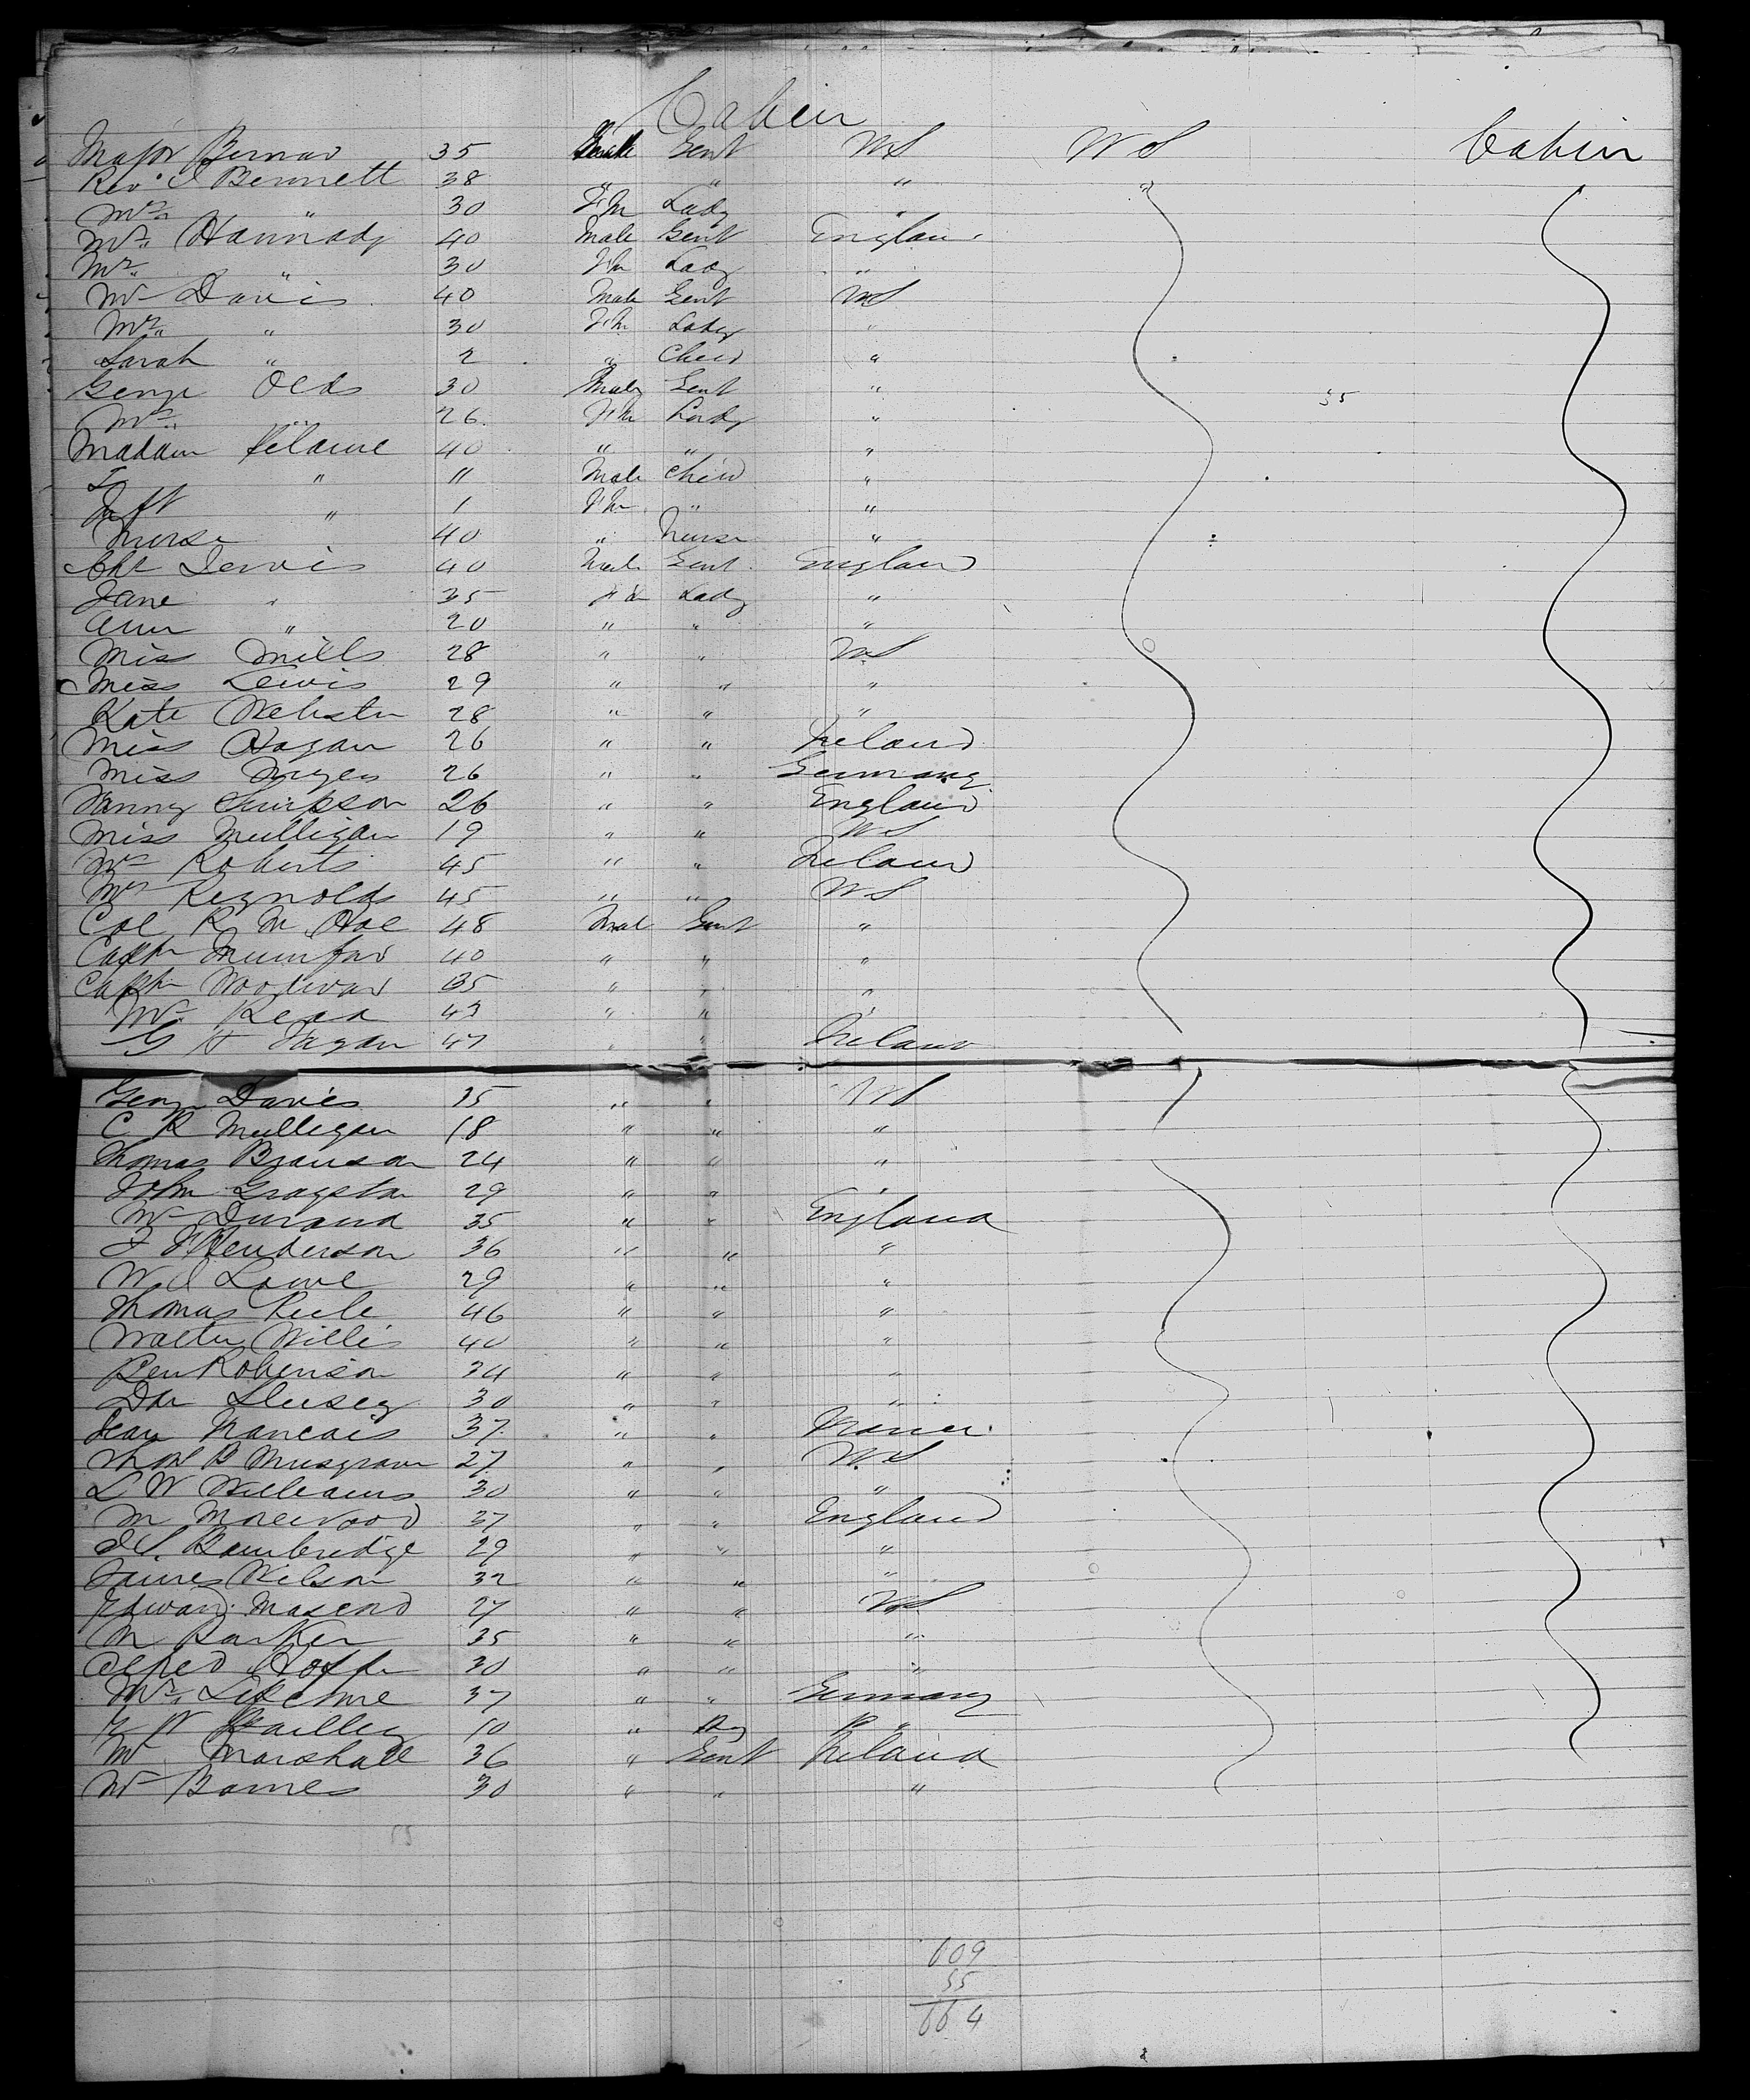 Cabin
Major Bernard 35 Male Gent US US Cabin
Rev. J Bennett 38 " " " "
Mrs " 30 Fm Lady "
Mr Hannady 40 Male Gent England
Mrs " 30 Fm Lady "
Mr Davis 40 Male Gent US
Mrs " 30 Fm Lady "
Sarah " 2 " Child "
George Olds 30 Male Gent " 55
Mrs " 26 Fm Lady "
Madam 40 " " "
" 11 Male Child "
" 1 Fm " "
Nurse 40 " Nurse "
Jervis 40 Male Gent England
Jane " 35 Fm Lady "
Ann " 20 " " "
Miss Mills 28 " " US
Miss Lewis 29 " " "
Kate Webster 28 " " "
Miss Hogan 26 " " Ireland
Miss 26 " " Germany
Fanny Simpson 26 " " England
Miss Mulligan 19 " " US
Mrs Roberts 45 " " Ireland
Mrs Reynolds 45 " " US
Col R M Hoe 48 Male Gent "
Captn Mumford 40 " " "
Captn Woodward 35 " " "
Mr Read 43 " " "
G H Fagan 47 " " Ireland
George Davies 35 " " US
C R Mulligan 18 " " "
Thomas Branson 24 " " "
John Grayston 29 " " "
Mr Durand 35 " " England
Henderson 36 " " "
W J Lowe 29 " " "
Thomas 46 " " "
Walter Willis 40 " " "
Ben Robinson 34 " " "
30 " " "
Jean Francais 37 " " France
Thos B Musgrave 27 " " US
L W Williams 30 " " "
M Morewood 37 " " England
Bambridge 29 " " "
James Wilson 32 " " "
Edward 27 " " US
M Barker 35 " " "
Alfred 30 " " "
Mr 37 " " Germany
10 " Boy "
Mr Marshall 36 " Gent Ireland
Mr Barnes 30 " " "
609
55
664